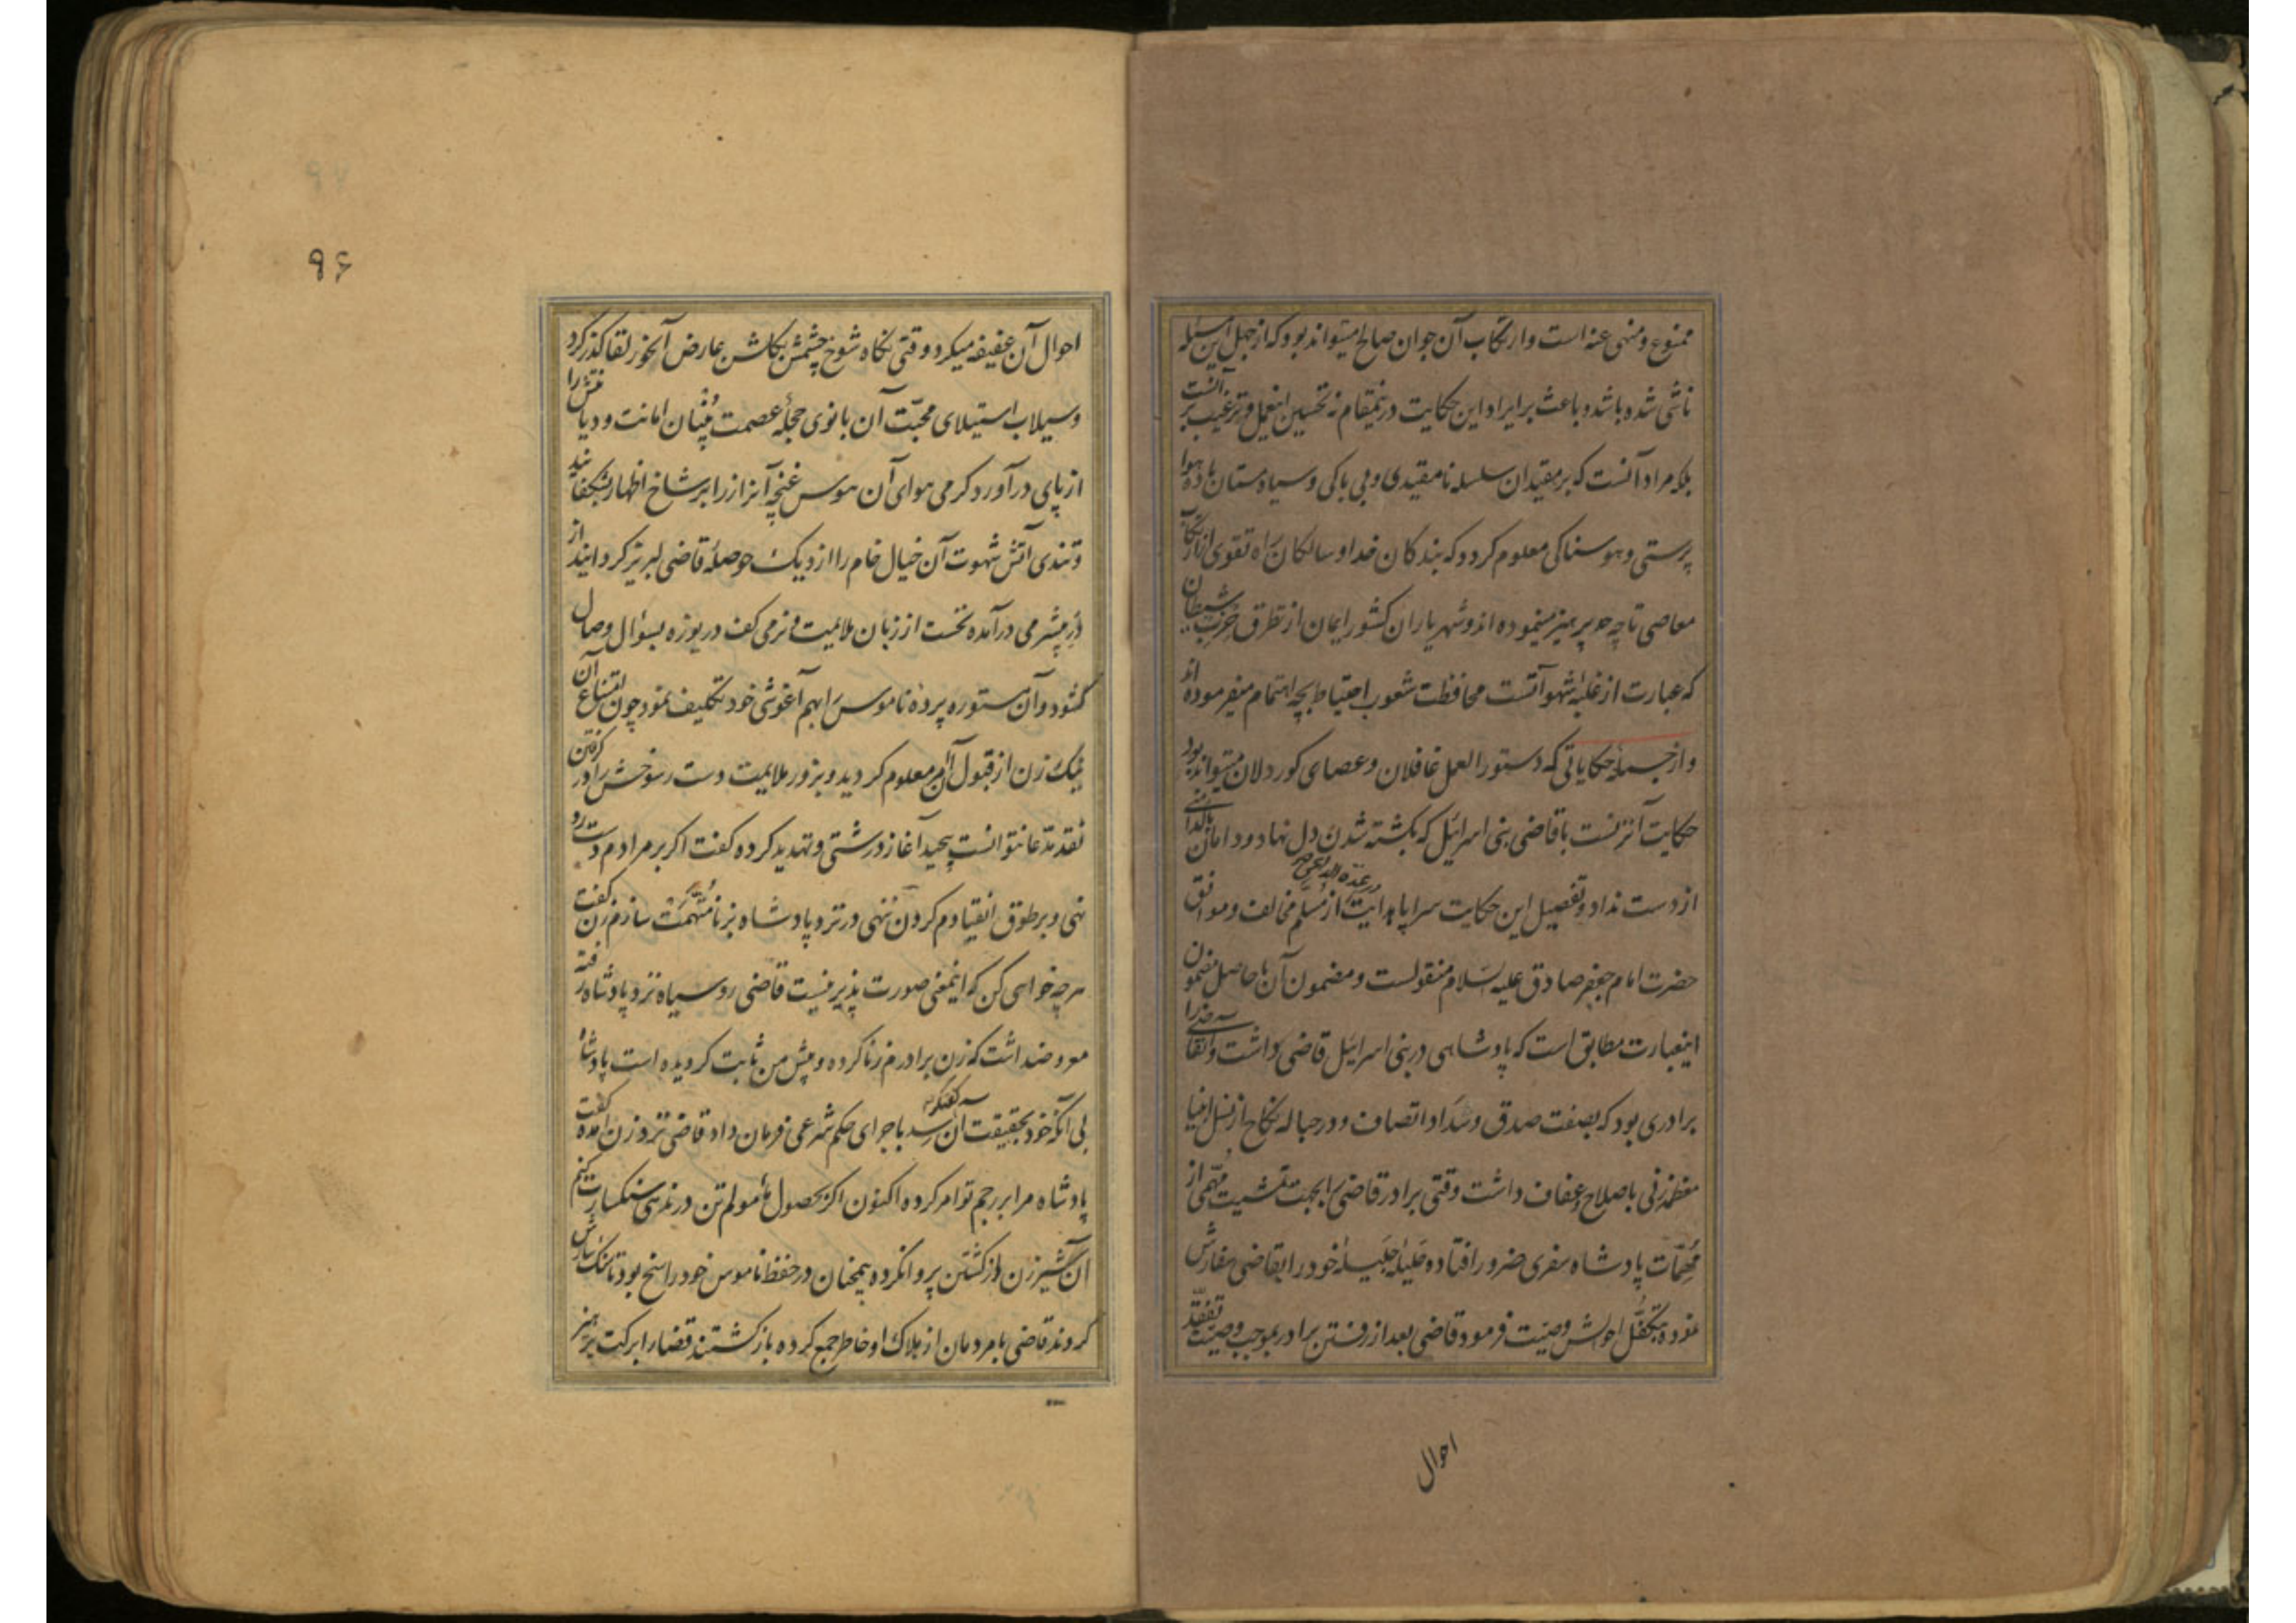 ممنوع و منهی عنه است و ارتکاب آن جوان صالح میتواند بود که از جهل این مسئله
ناشی شده باشد و باعث بر ایراد این حکایت درینمقام نه تحسین اینعمل و ترغیب بر آنست
بلکه مراد آنست که بر مقیدان سلسله نامقیدی و بی باکی و سیاه مستان باده هوا
پرستی و هوسناکی معلوم کردد که بندکان خدا و سالکان راه تقوی از ارتکاب
معاصی تا چه حد پرهیز مینموده اند و شهریاران کشور ایمان از تطرق حزب شیطان
که عبارت از غلبه شهواتست محافظت شعور احتیاط بچه اهتمام میفرموده اند
و از جمله حکایاتی که دستور العمل غافلان و عصای کوردلان میتواند بود
حکایت آنزنست با قاضی بنی اسرائیل که بکشته شدن دل نهاد و دامان پاکدامنی
از دست نداد و تفصیل این حکایت سراپا هدایت از مسلم مخالف و موافق
حضرت امام جعفر صادق علیه السلام منقولست و مضمون آن با حاصل مضمون
اینعبارت مطابق است که پادشاهی در بنی اسرائیل قاضی داشت و آنقاضی را
برادری بود که بصفت صدق و سداد اتصاف و در حباله نکاح از نسل انبیا
معظمه زنی باصلاح و عفاف داشت وقتی برادر قاضی را بجهت تمشیت مهمی از
مهمات پادشاه سفری ضرور افتاده حلیله جلیله خود را بقاضی سفارش
نموده بتکفل احوالش وصیت فرمود قاضی بعد از رفتن برادر بموجب وصیت تفقد
احوال
۹۶
احوال آن عفیفه میکرد و وقتی نکاه شوخ چشمش بکلشن عارض آنخور لقا کذر کرد
و سیلاب استیلای محبت آن بانوی حجله عصمت بنیان امانت و دیانتش را
از پای در آورد کرمی هوای آن هوس غنچه آنراز را بر شاخ اظهار بشکفانید
و تندی آتش شهوت آن خیال خام را از دیک حوصله قاضی لبریز کردانید از
در بیشرمی درآمده نخست از زبان ملایمت و نرمی کف دریوزه بسؤال وصال
کشود و آن مستوره پرده ناموس را بهم آغوشی خود تکلیف نمود چون امتناع آن
نیک زن از قبول آن امر معلوم کردید و بزور ملایمت دست رسوخش را در کرفتن
نقد مدعا نتوانست پیچید آغاز درشتی و تهدید کرده کفت اکر بر مرادم دست رد
نهی و بر طوق انقیادم کردن ننهی در نزد پادشاه بزنا متهمت سازم زن کفت
هر چه خواهی کن که اینمعنی صورت پذیر نیست قاضی رو سیاه نزد پادشاه رفته
معروضداشت که زن برادرم زنا کرده و پیش من ثابت کردیده است پادشاه
بی آنکه خود بحقیقت آن رسد باجرای حکم شرعی فرمان داد قاضی نزد زن آمده کفت
پادشاه مرا برجم تو امر کرده اکنون اکر بحصول مأمولم تن در ندهی سنکسارت کنم
آن شیر زن از کشتن پروا نکرده همچنان در حفظ ناموس خود راسخ بود تا سنک سارش
کردند قاضی با مردمان از هلاک او خاطر جمع کرده باز کشتند قضا را برکت پرهیز